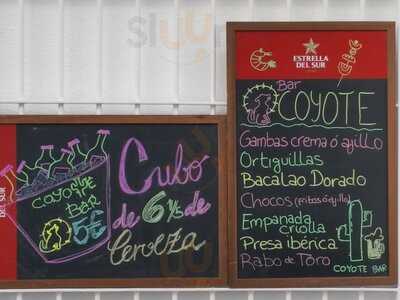 ESTRELLA
DEL SUR
Bar
COYOTE
Gambas crema ó ajillo
Ortiguillas
Bacalao Dorado
Chocos (fritos ó ajillo)
Empanada
criolla
Presa ibérica
Rabo de Toro
COYOTE BAR
DEL SUR
Cubo
de 6 1/5 de
Cerveza
COYOTE
BAR
5€